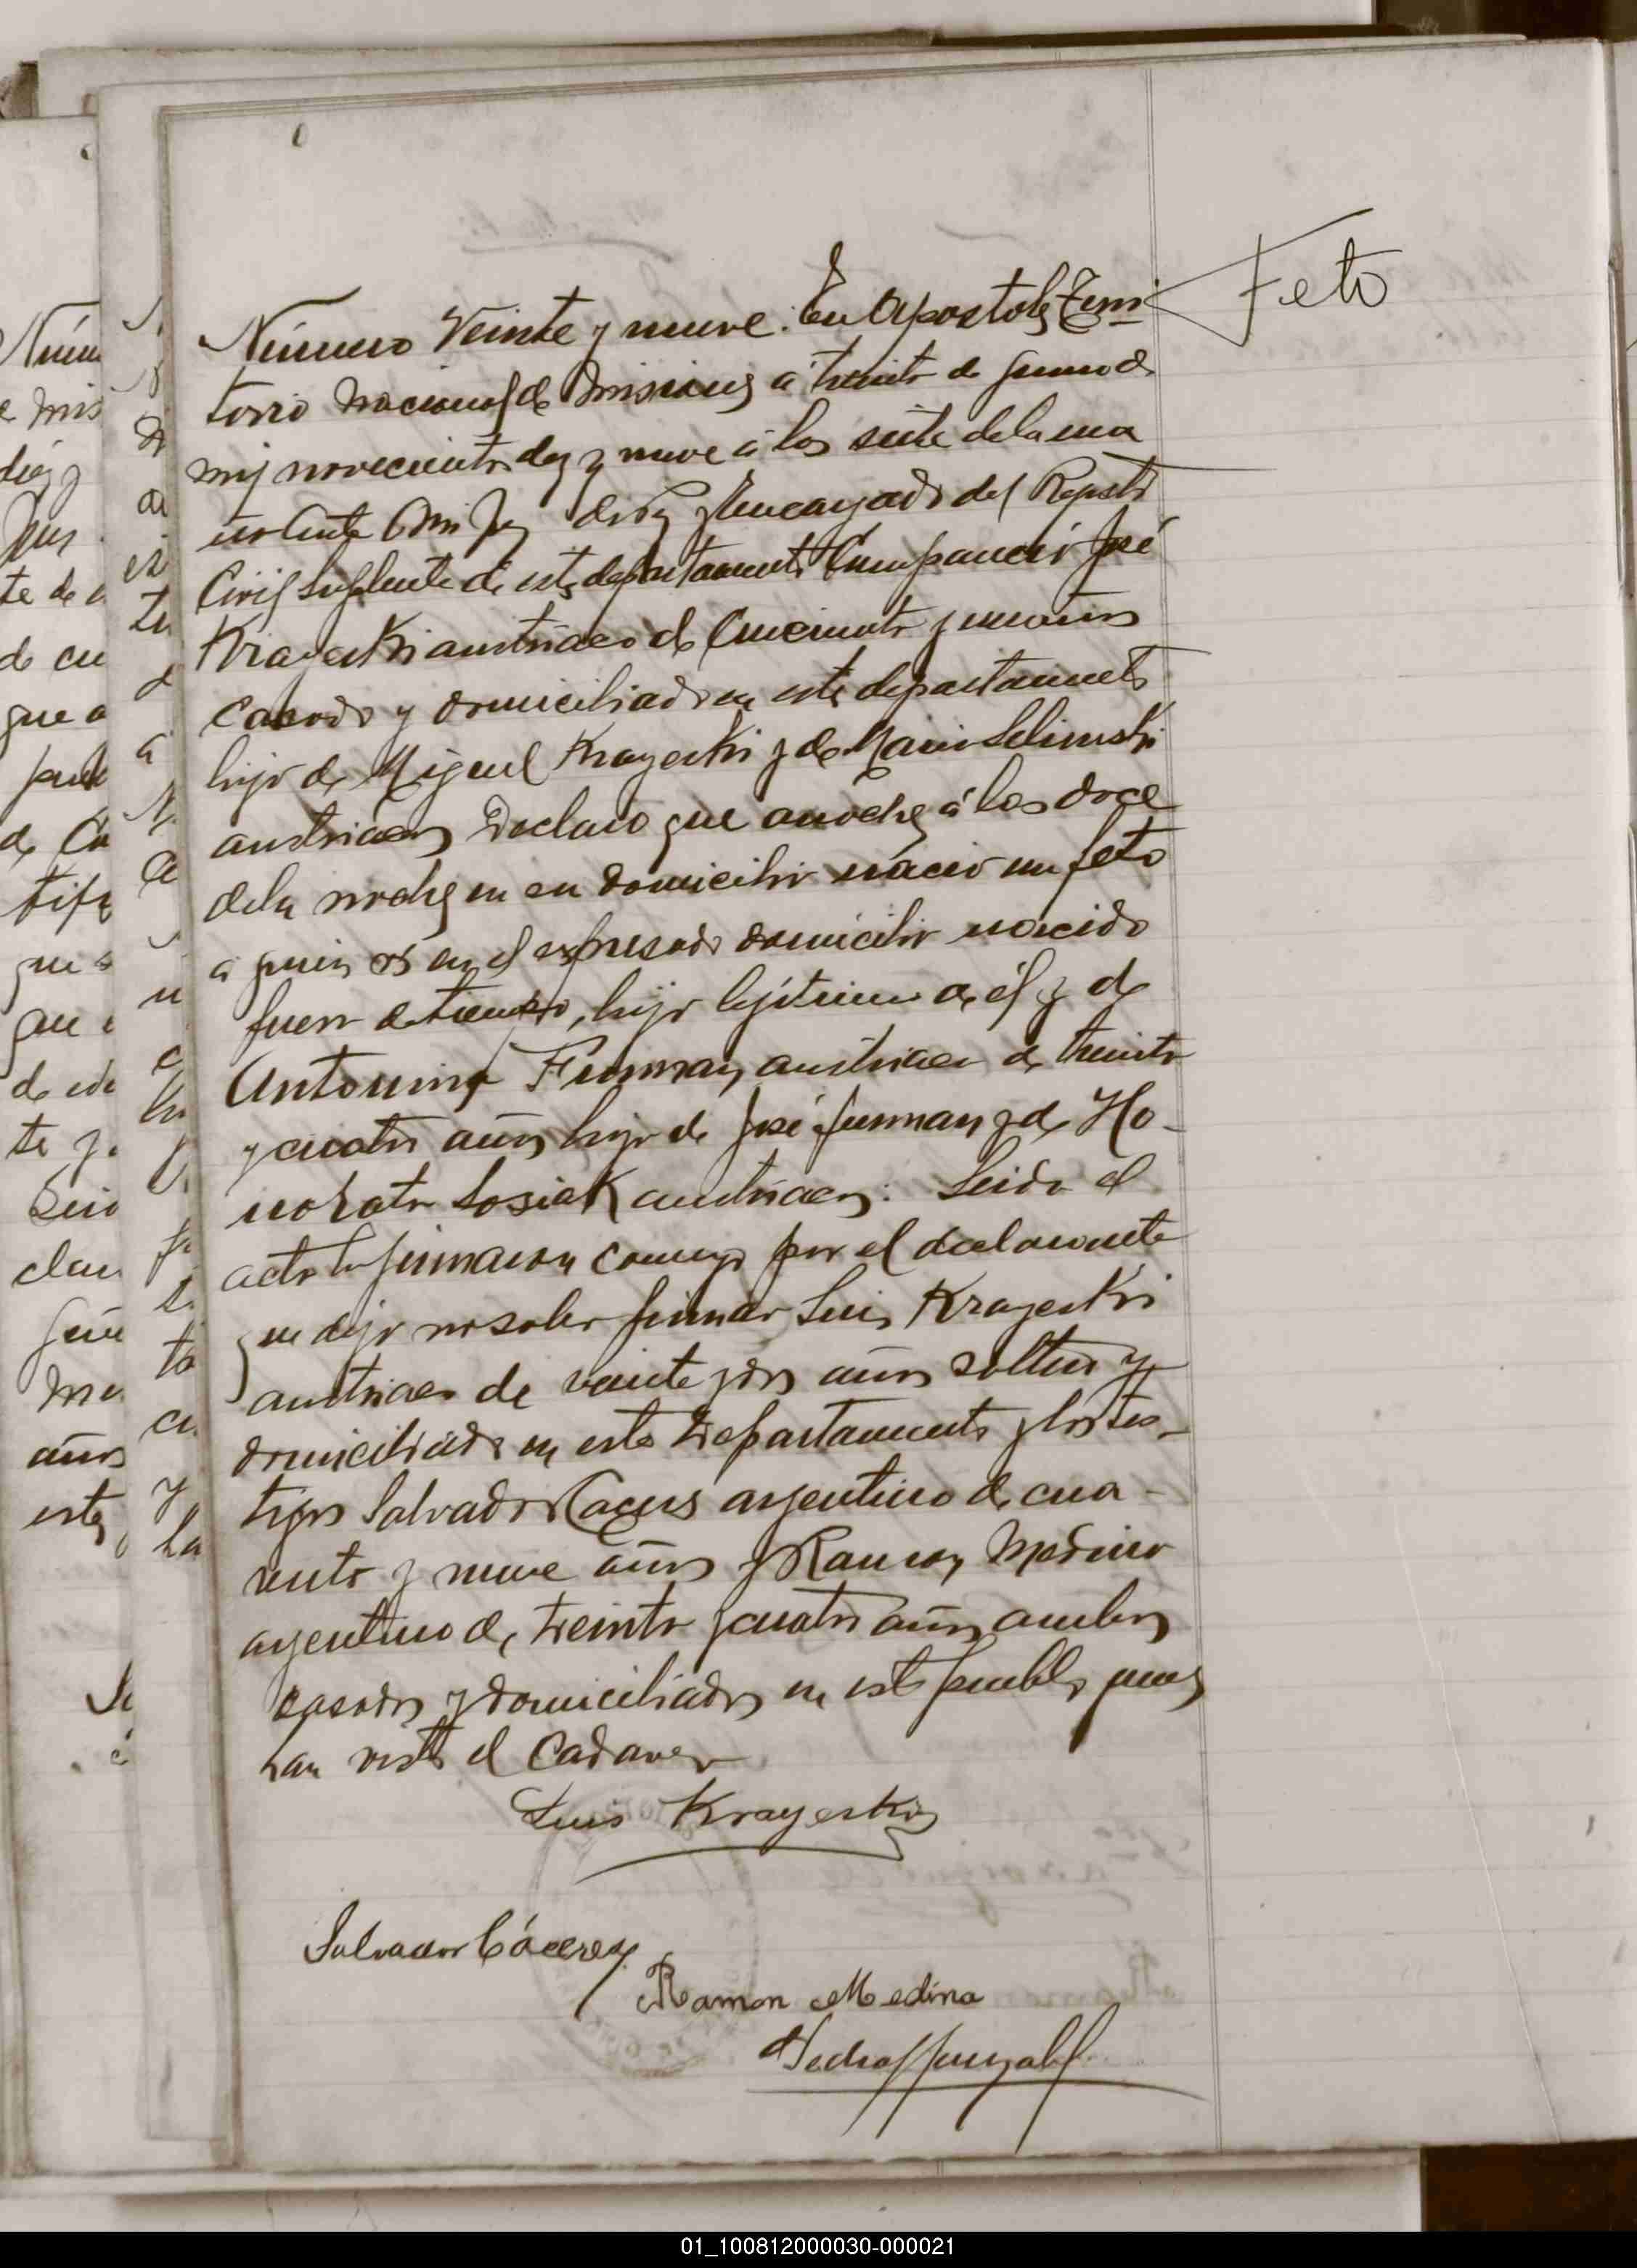 Feto
Número Veinte y nueve. En Apostoles Terri-
torio Nacional de Misiones a treinta de Junio de
mil novecientos diez y nueve á las siete de la ma
ñana Ante Mi Juez de Paz y Encargado del Registro
Civil Suplente de este departamento Compareció José
Krayeski austriaco de Cincuenta y un años
casado y domiciliado en este departamento
hijo de Miguel Krayeski y de Maria Selinski
austriacos Declaró que anoche á las doce
de la noche en su domicilio nació un feto
a quien en el expresado domicilio nacido
fuera de tiempo, hijo lejitimo de él y de
Antonina Furman, austriaca de treinta
y cuatro años hija de José Furman y de Ho-
norata Sosiak austriacos: Leida el
acta la firmaron conmigo por el declarante
que dijo no saber firmar Luis Krayeski
austriaco de veinte y dos años soltero y
domiciliado en este Departamento y los tes-
tigos Salvador Caceres argentino de cua-
renta y nueve años y Ramon Medina
argentino de treinta y cuatro años ambos
casados y domiciliados en este pueblo quienes
han visto el Cadaver
Luis Krayeski
Salvador Cáceres
Ramon Medina
01_100812000030-000021